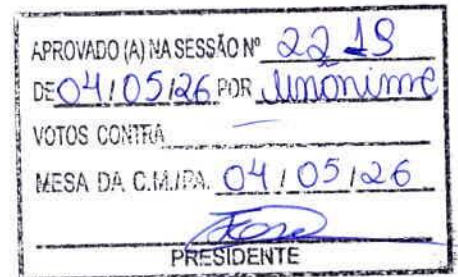 APROVADO (A) NA SESSÃO Nº 2219
DE 04/05/26 POR Unânime
VOTOS CONTRA —
MESA DA C.M./PA. 04/05/26
PRESIDENTE